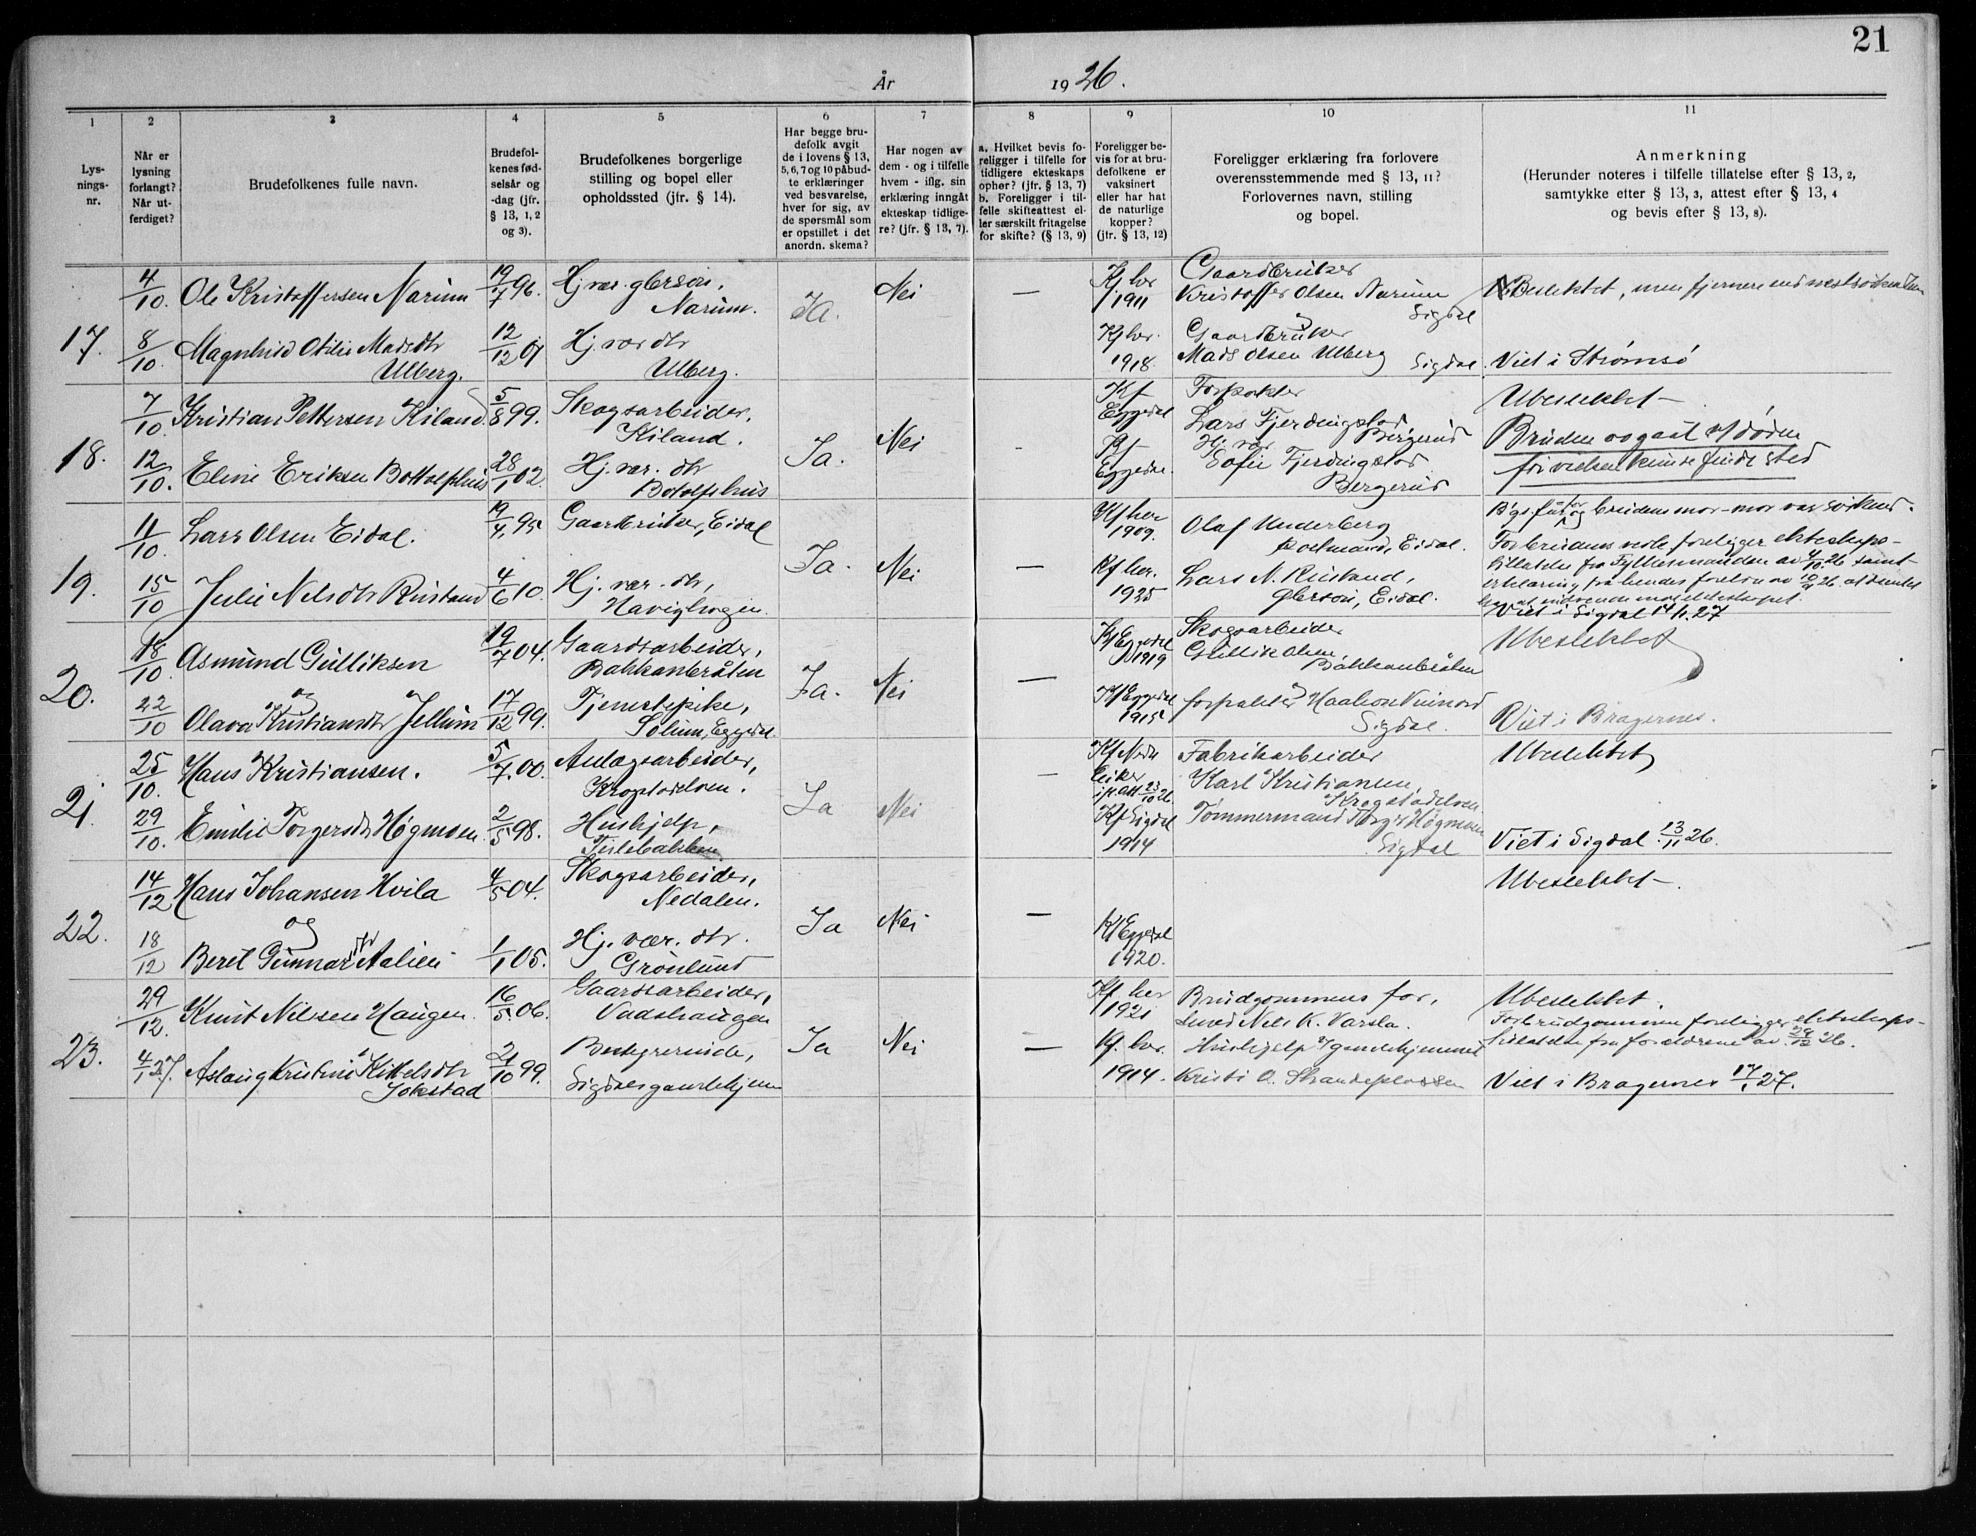 21
År 1926.
1 2 3 4 5 6 7 8 9 10 11
Lys-
nings-
nr.
Når er
lysning
forlangt?
Når ut-
ferdiget?
Brudefolkenes fulle navn.
Brudefol-
kenes fød-
selsår og
-dag (jfr.
§ 13, 1, 2
og 3).
Brudefolkenes borgerlige
stilling og bopel eller
opholdssted (jfr. § 14).
Har begge bru-
defolk avgit
de i lovens § 13,
5, 6, 7 og 10 påbud-
te erklæringer
ved besvarelse,
hver for sig, av
de spørsmål som
er opstillet i det
anordn. skema?
Har nogen av
dem - og i tilfelle
hvem - iflg. sin
erklæring inngåt
ekteskap tidlige-
re? (jfr. § 13, 7).
a. Hvilket bevis fo-
religger i tilfelle for
tidligere ekteskaps
ophør? (jfr. § 13, 7)
b. Foreligger i til-
felle skifteattest el-
ler særskilt fritagelse
for skifte? (§ 13, 9)
Foreligger be-
vis for at bru-
defolkene er
vaksinert
eller har hat
de naturlige
kopper?
(jfr. § 13, 12)
Foreligger erklæring fra forlovere
overensstemmende med § 13, 11?
Forlovernes navn, stilling
og bopel.
Anmerkning
(Herunder noteres i tilfelle tillatelse efter § 13, 2,
samtykke efter § 13, 3, attest efter § 13, 4
og bevis efter § 13, 8).
17.
4/10 Ole Kristoffersen Narum 19/7 96.
Narum.
Ja. Nei —
1911
Gaardbruker
Kristoffer Olsen Narum
Sigdal
8/10. Magnhild Otilie Madsdtr
Ulberg. 12/12 01
Hj. vær dtr
Ulberg.
1918.
Gaardbruker
Mads Olsen Ulberg Sigdal
Viet i Strømsø
18.
7/10 Kristian Pettersen Kiland. 5/8 99.
Skogsarbeider,
Kiland.
Ja. Nei
Kf
Eggedal
Forpakter
Lars Fjerdingstad
Bergerud
Ubeslektet
12/10. Eline Eriksen Bottolfshus 28/1 02.
Hj. vær. dtr
Botolfshus
Kf
Eggedal
Hj. vær
Sofie Fjerdingstad
Bergerud
Bruden avgaat v/ døden
før vielsen kunde finde sted
19.
11/10 Lars Olsen Eidal. 19/4 95
Gaardbruker, Eidal
Ja. Nei —
Kf her
1909.
Olaf Underberg
Eidal.
15/10 Julie Nelsdtr Rustand 4/6 10.
Hj. vær. dtr,
Kf her.
1925
Lars N. Rustand,
Eidal.
For brudens vedk. foreligger ekteskaps-
tillatelse fra Fylkesmanden av 4/10 26 samt
erklæring fra hendes
Viet i Sigdal 27
20.
18/10. Asmund Gulliksen 19/7 04.
og
Gaardsarbeider,
Bakkanbråten
Ja. Nei —
Kf Eggedal
1919
Skogsarbeider
Gullik Olsen,
Bakkanbråten
Ubeslektet
22/10 Olava Kristiansdtr Jellum 17/12 99.
Tjenestepike,
Solum, Eggedal.
Kf Eggedal
1915
forpakter Haakon
Sigdal.
Viet i Bragernes.
21.
25/10. Hans Kristiansen. 5/7. 00.
Anlægsarbeider,
Krogstadelven.
Ja Nei —
Kf Nedre
Eiker
ifl. att. 23/10 26.
Fabrikarbeider
Karl Kristiansen,
Krogstadelven
Ubeslektet
29/10. Emilie Torgersdtr Høgmoen. 2/5 98.
Hushjelp,
Kf Sigdal
1914
Tømmermand Torger Høgmoen
Sigdal
Viet i Sigdal. 13/11 26.
22.
14/12 Hans Johansen Hvila 4/5 04.
og
Skogsarbeider,
Nedalen.
Ja Nei —
Ubeslektet.
18/12 Beret Gunnarsdtr Aalien 1/1 05.
Hj. vær. dtr.
Grønlund
Kf Eggedal
1920.
23.
29/12. Knut Nilsen Haugen. 16/5. 06.
Gaardsarbeider,
Vadshaugen
Ja Nei —
Kf. her
1921
Brudgommens far,
Smed Nels K. Varsla.
Ubeslektet.
For brudgommen foreligger ekteskaps-
tillatelse fra forældrene av. 29/12 26.
4/1 27. Aslaug Kristine Kittelsdtr
Jokstad 21/10 99.
Bestyrerinde,
Sigdal gamlehjem
Kf. her.
1914.
Hushjelp v/ gamlehjemmet
Kristi O. Strandeplassen
Viet i Bragernes 17/1 27.